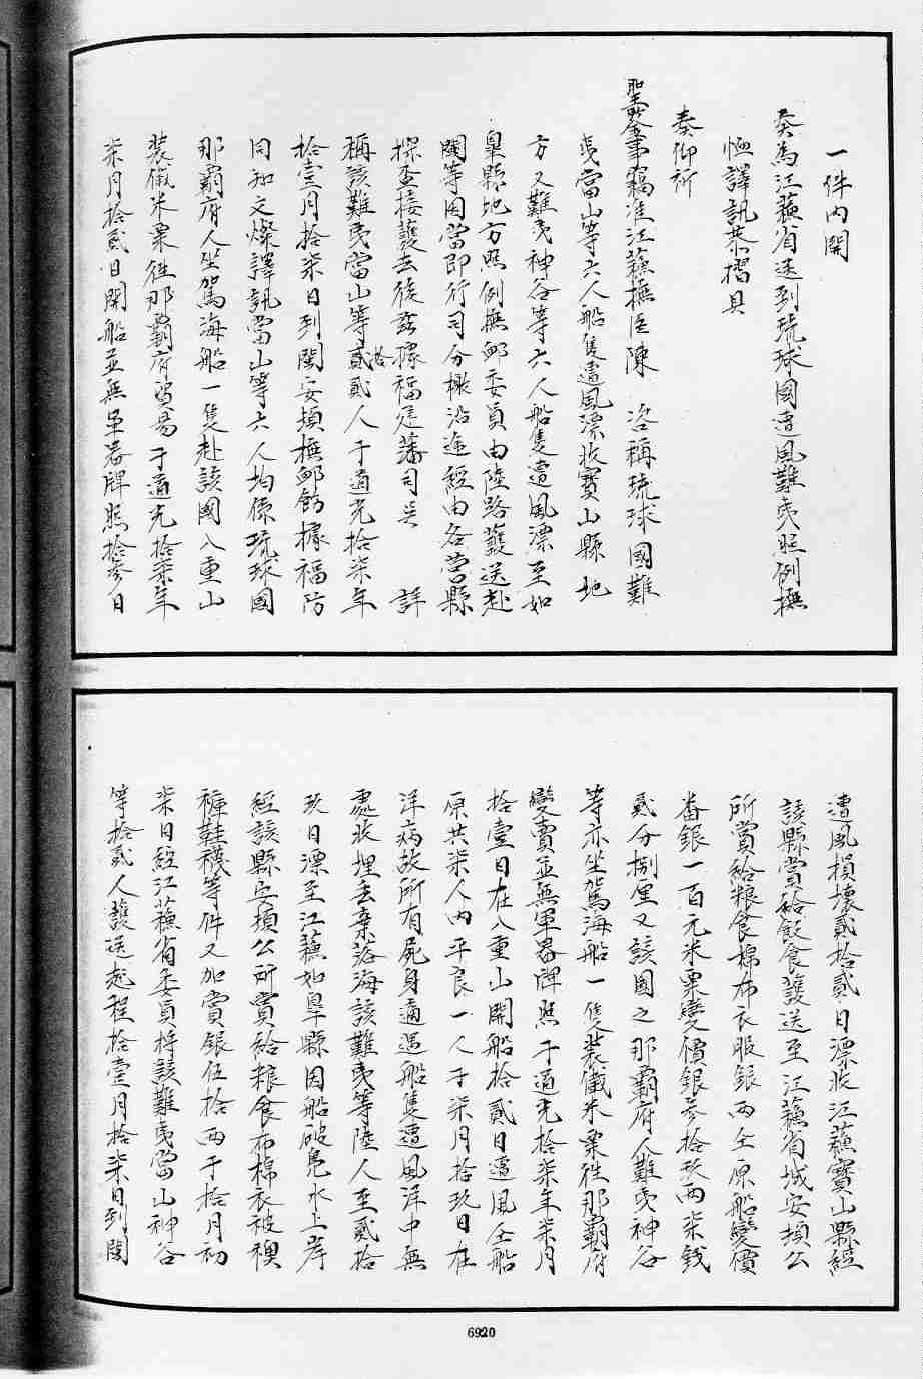 一件內開
奏為江蘇省送到琉球國遭風難夷照例撫
恤譯訊恭摺具
奏仰祈
聖鑒事竊准江蘇撫臣陳　咨稱琉球國難
夷當山等六人船隻遭風漂收寶山縣地
方又難夷神谷等六人船隻遭風漂至如
皋縣地方照例撫卹委員由陸路護送赴
閩等因當即行司分檄沿途經由各營縣
探查接護去後茲據福建藩司吳　　詳
稱該難夷當山等拾貳人于道光拾柒年
拾壹月拾柒日到閩安頓撫卹飭據福防
同知文燦譯訊當山等六人均係琉球國
那霸府人坐駕海船一隻赴該國八重山
裝儎米粟往那霸府貿易于道光拾柒年
柒月拾貳日開船並無軍器牌照拾參日
遭風損壞貳拾貳日漂收江蘇寶山縣經
該縣賞給飲食護送至江蘇省城安頓公
所賞給粮食棉布衣服銀兩仝原船變價
番銀一百元米粟變價銀參拾玖兩柒錢
貳分捌厘又該國之那霸府人難夷神谷
等亦坐駕海船一隻裝儎米粟往那霸府
變賣並無軍器牌照于道光拾柒年柒月
拾壹日在八重山開船拾貳日遭風仝船
原共柒人內平良一人于柒月拾玖日在
洋病故所有屍身適遇船隻遭風洋中無
處收埋丟棄落海該難夷等陸人至貳拾
玖日漂至江蘇如皋縣因船破鳧水上岸
經該縣安頓公所賞給粮食布棉衣被襖
褲鞋襪等件又加賞銀伍拾兩于拾月初
柒日經江蘇省委員將該難夷當山神谷
等拾貳人護送起程拾壹月拾柒日到閩
6920